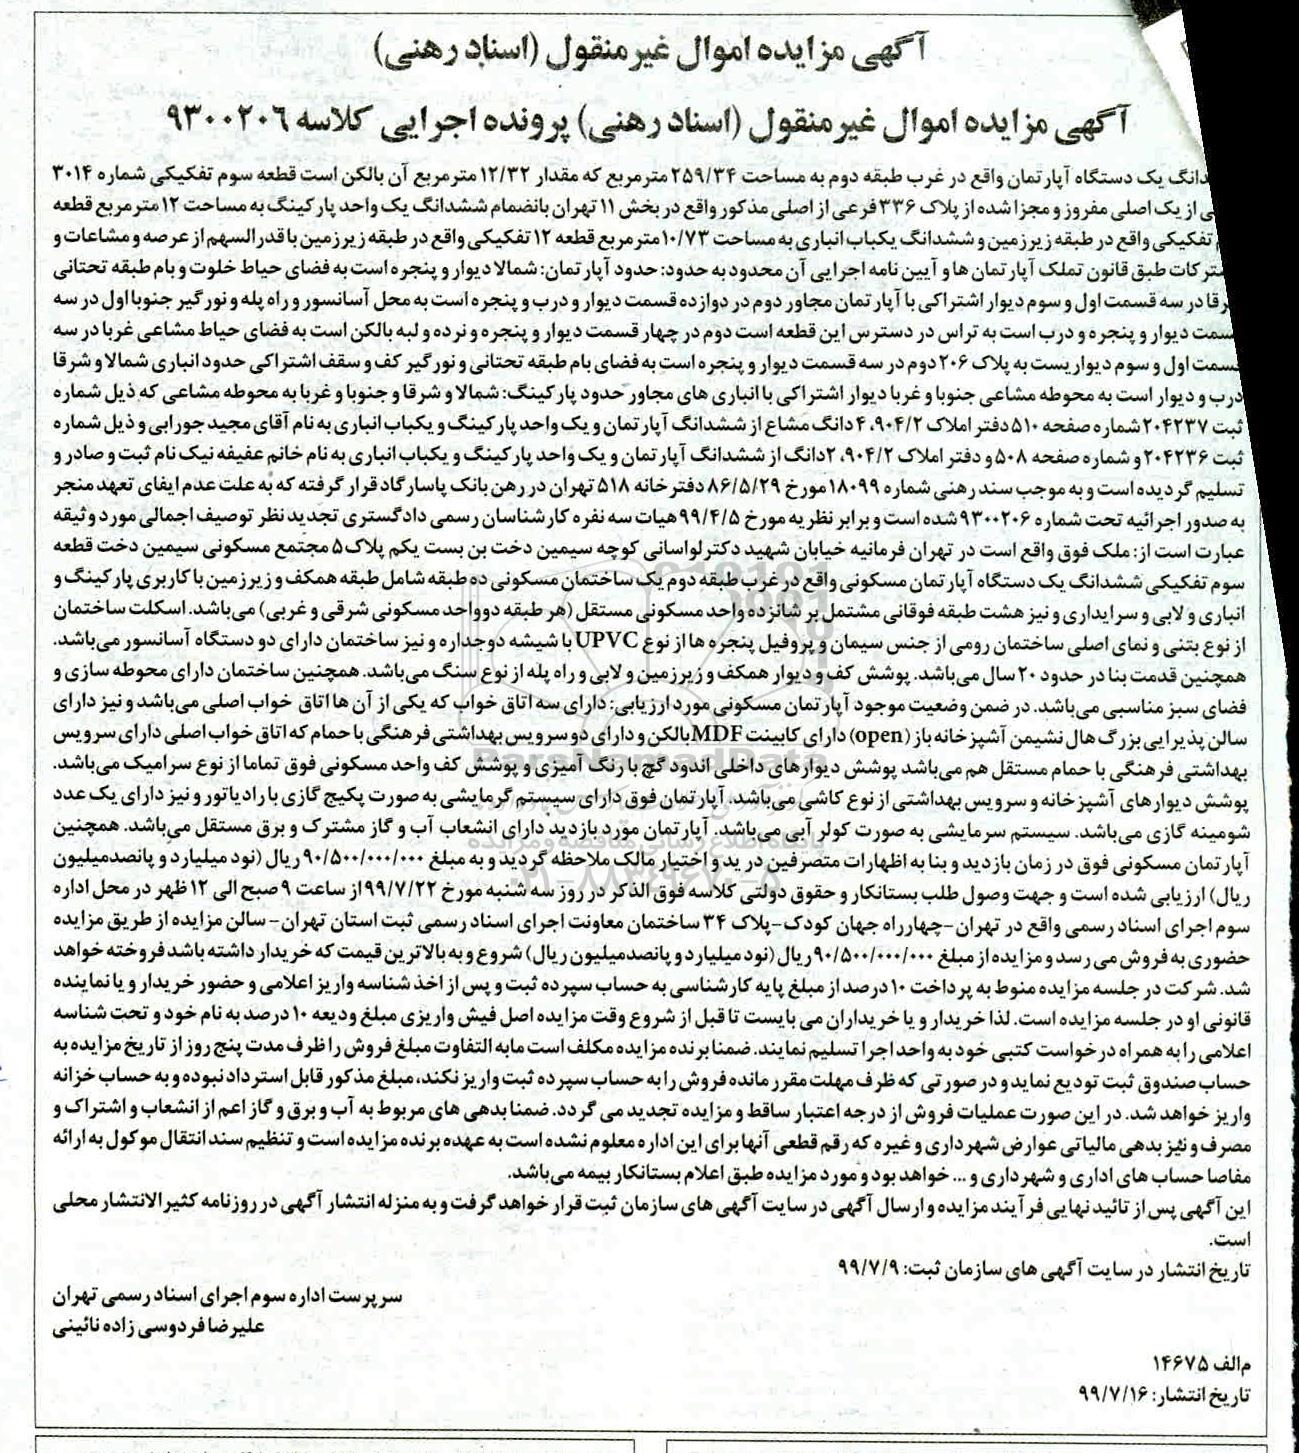 آگهی مزایده اموال غیرمنقول (اسناد رهنی)
آگهی مزایده اموال غیرمنقول (اسناد رهنی) پرونده اجرایی کلاسه ۹۳۰۰۲۰۶
یک دستگاه آپارتمان واقع در غرب طبقه دوم به مساحت ۲۵۹/۳۴ مترمربع که مقدار ۱۲/۳۲ مترمربع آن بالکن است قطعه سوم تفکیکی شماره ۳۰۱۴
از یک اصلی مفروز و مجزا شده از پلاک ۳۳۶ فرعی از اصلی مذکور واقع در بخش ۱۱ تهران بانضمام ششدانگ یک واحد پارکینگ به مساحت ۱۲ مترمربع قطعه
تفکیکی واقع در طبقه زیرزمین و ششدانگ یکباب انباری به مساحت ۱۰/۷۳ مترمربع قطعه ۱۲ تفکیکی واقع در طبقه زیرزمین با قدرالسهم از عرصه و مشاعات و
طبق قانون تملک آپارتمان ها و آیین نامه اجرایی آن محدود به حدود: حدود آپارتمان: شمالا دیوار و پنجره است به فضای حیاط خلوت و بام طبقه تحتانی
در سه قسمت اول و سوم دیوار اشتراکی با آپارتمان مجاور دوم در دوازده قسمت دیوار و درب و پنجره است به محل آسانسور و راه پله و نورگیر جنوبا اول در سه
قسمت دیوار و پنجره و درب است به تراس در دسترس این قطعه است دوم در چهار قسمت دیوار و پنجره و نرده و لبه بالکن است به فضای حیاط مشاعی غربا در سه
قسمت اول و سوم دیواریست به پلاک ۲۰۶ دوم در سه قسمت دیوار و پنجره است به فضای بام طبقه تحتانی و نورگیر کف و سقف اشتراکی حدود انباری شمالا و شرقا
درب و دیوار است به محوطه مشاعی جنوبا و غربا دیوار اشتراکی با انباری های مجاور حدود پارکینگ: شمالا و شرقا و جنوبا و غربا به محوطه مشاعی که ذیل شماره
ثبت ۲۰۴۲۳۷ شماره صفحه ۵۱۰ دفتر املاک ۹۰۴/۲، ۴ دانگ مشاع از ششدانگ آپارتمان و یک واحد پارکینگ و یکباب انباری به نام آقای مجید جورابی و ذیل شماره
ثبت ۲۰۴۲۳۶ و شماره صفحه ۵۰۸ و دفتر املاک ۹۰۴/۲، ۲ دانگ از ششدانگ آپارتمان و یک واحد پارکینگ و یکباب انباری به نام خانم عفیفه نیک نام ثبت و صادر و
تسلیم گردیده است و به موجب سند رهنی شماره ۱۸۰۹۹ مورخ ۸۶/۵/۲۹ دفترخانه ۵۱۸ تهران در رهن بانک پاسارگاد قرار گرفته که به علت عدم ایفای تعهد منجر
به صدور اجرائیه تحت شماره ۹۳۰۰۲۰۶ شده است و برابر نظریه مورخ ۹۹/۴/۵ هیات سه نفره کارشناسان رسمی دادگستری تجدید نظر توصیف اجمالی مورد وثیقه
عبارت است از: ملک فوق واقع است در تهران فرمانیه خیابان شهید دکتر لواسانی کوچه سیمین دخت بن بست یکم پلاک ۵ مجتمع مسکونی سیمین دخت قطعه
سوم تفکیکی ششدانگ یک دستگاه آپارتمان مسکونی واقع در غرب طبقه دوم یک ساختمان مسکونی ده طبقه شامل طبقه همکف و زیرزمین با کاربری پارکینگ و
انباری و لابی و سرایداری و نیز هشت طبقه فوقانی مشتمل بر شانزده واحد مسکونی مستقل (هر طبقه دو واحد مسکونی شرقی و غربی) می‌باشد. اسکلت ساختمان
از نوع بتنی و نمای اصلی ساختمان رومی از جنس سیمان و پروفیل پنجره ها از نوع UPVC با شیشه دوجداره و نیز ساختمان دارای دو دستگاه آسانسور می‌باشد.
همچنین قدمت بنا در حدود ۲۰ سال می‌باشد. پوشش کف و دیوار همکف و زیرزمین و لابی و راه پله از نوع سنگ می‌باشد. همچنین ساختمان دارای محوطه سازی و
فضای سبز مناسبی می‌باشد. در ضمن وضعیت موجود آپارتمان مسکونی مورد ارزیابی: دارای سه اتاق خواب که یکی از آن ها اتاق خواب اصلی می‌باشد و نیز دارای
سالن پذیرایی بزرگ هال نشیمن آشپزخانه باز (open) دارای کابینت MDF بالکن و دارای دو سرویس بهداشتی فرهنگی با حمام که اتاق خواب اصلی دارای سرویس
بهداشتی فرهنگی با حمام مستقل هم می‌باشد پوشش دیوارهای داخلی اندود گچ با رنگ آمیزی و پوشش کف واحد مسکونی فوق تماما از نوع سرامیک می‌باشد.
پوشش دیوارهای آشپزخانه و سرویس بهداشتی از نوع کاشی می‌باشد. آپارتمان فوق دارای سیستم گرمایشی به صورت پکیج گازی با رادیاتور و نیز دارای یک عدد
شومینه گازی می‌باشد. سیستم سرمایشی به صورت کولر آبی می‌باشد. آپارتمان مورد بازدید دارای انشعاب آب و گاز مشترک و برق مستقل می‌باشد. همچنین
آپارتمان مسکونی فوق در زمان بازدید و بنا به اظهارات متصرفین در ید و اختیار مالک ملاحظه گردید و به مبلغ ۹۰/۵۰۰/۰۰۰/۰۰۰ ریال (نود میلیارد و پانصدمیلیون
ریال) ارزیابی شده است و جهت وصول طلب بستانکار و حقوق دولتی کلاسه فوق الذکر در روز سه شنبه مورخ ۹۹/۷/۲۲ از ساعت ۹ صبح الی ۱۲ ظهر در محل اداره
سوم اجرای اسناد رسمی واقع در تهران-چهارراه جهان کودک-پلاک ۳۴ ساختمان معاونت اجرای اسناد رسمی ثبت استان تهران- سالن مزایده از طریق مزایده
حضوری به فروش می رسد و مزایده از مبلغ ۹۰/۵۰۰/۰۰۰/۰۰۰ ریال (نود میلیارد و پانصدمیلیون ریال) شروع و به بالاترین قیمت که خریدار داشته باشد فروخته خواهد
شد. شرکت در جلسه مزایده منوط به پرداخت ۱۰ درصد از مبلغ پایه کارشناسی به حساب سپرده ثبت و پس از اخذ شناسه واریز اعلامی و حضور خریدار و یا نماینده
قانونی او در جلسه مزایده است. لذا خریدار و یا خریداران می بایست تا قبل از شروع وقت مزایده اصل فیش واریزی مبلغ ودیعه ۱۰ درصد به نام خود و تحت شناسه
اعلامی را به همراه درخواست کتبی خود به واحد اجرا تسلیم نمایند. ضمنا برنده مزایده مکلف است مابه التفاوت مبلغ فروش را ظرف مدت پنج روز از تاریخ مزایده به
حساب صندوق ثبت تودیع نماید و در صورتی که ظرف مهلت مقرر مانده فروش را به حساب سپرده ثبت واریز نکند، مبلغ مذکور قابل استرداد نبوده و به حساب خزانه
واریز خواهد شد. در این صورت عملیات فروش از درجه اعتبار ساقط و مزایده تجدید می گردد. ضمنا بدهی های مربوط به آب و برق و گاز اعم از انشعاب و اشتراک و
مصرف و نیز بدهی مالیاتی عوارض شهرداری و غیره که رقم قطعی آنها برای این اداره معلوم نشده است به عهده برنده مزایده است و تنظیم سند انتقال موکول به ارائه
مفاصا حساب های اداری و شهرداری و ... خواهد بود و مورد مزایده طبق اعلام بستانکار بیمه می‌باشد.
این آگهی پس از تائید نهایی فرآیند مزایده و ارسال آگهی در سایت آگهی های سازمان ثبت قرار خواهد گرفت و به منزله انتشار آگهی در روزنامه کثیرالانتشار محلی
است.
تاریخ انتشار در سایت آگهی های سازمان ثبت: ۹۹/۷/۹
سرپرست اداره سوم اجرای اسناد رسمی تهران
علیرضا فردوسی زاده نائینی
م الف ۱۴۶۷۵
تاریخ انتشار: ۹۹/۷/۱۶
ParsNamadData
پایگاه اطلاع رسانی مناقصه و مزایده
۰۲۱-۸۸۳۴۹۶۷۰-۸